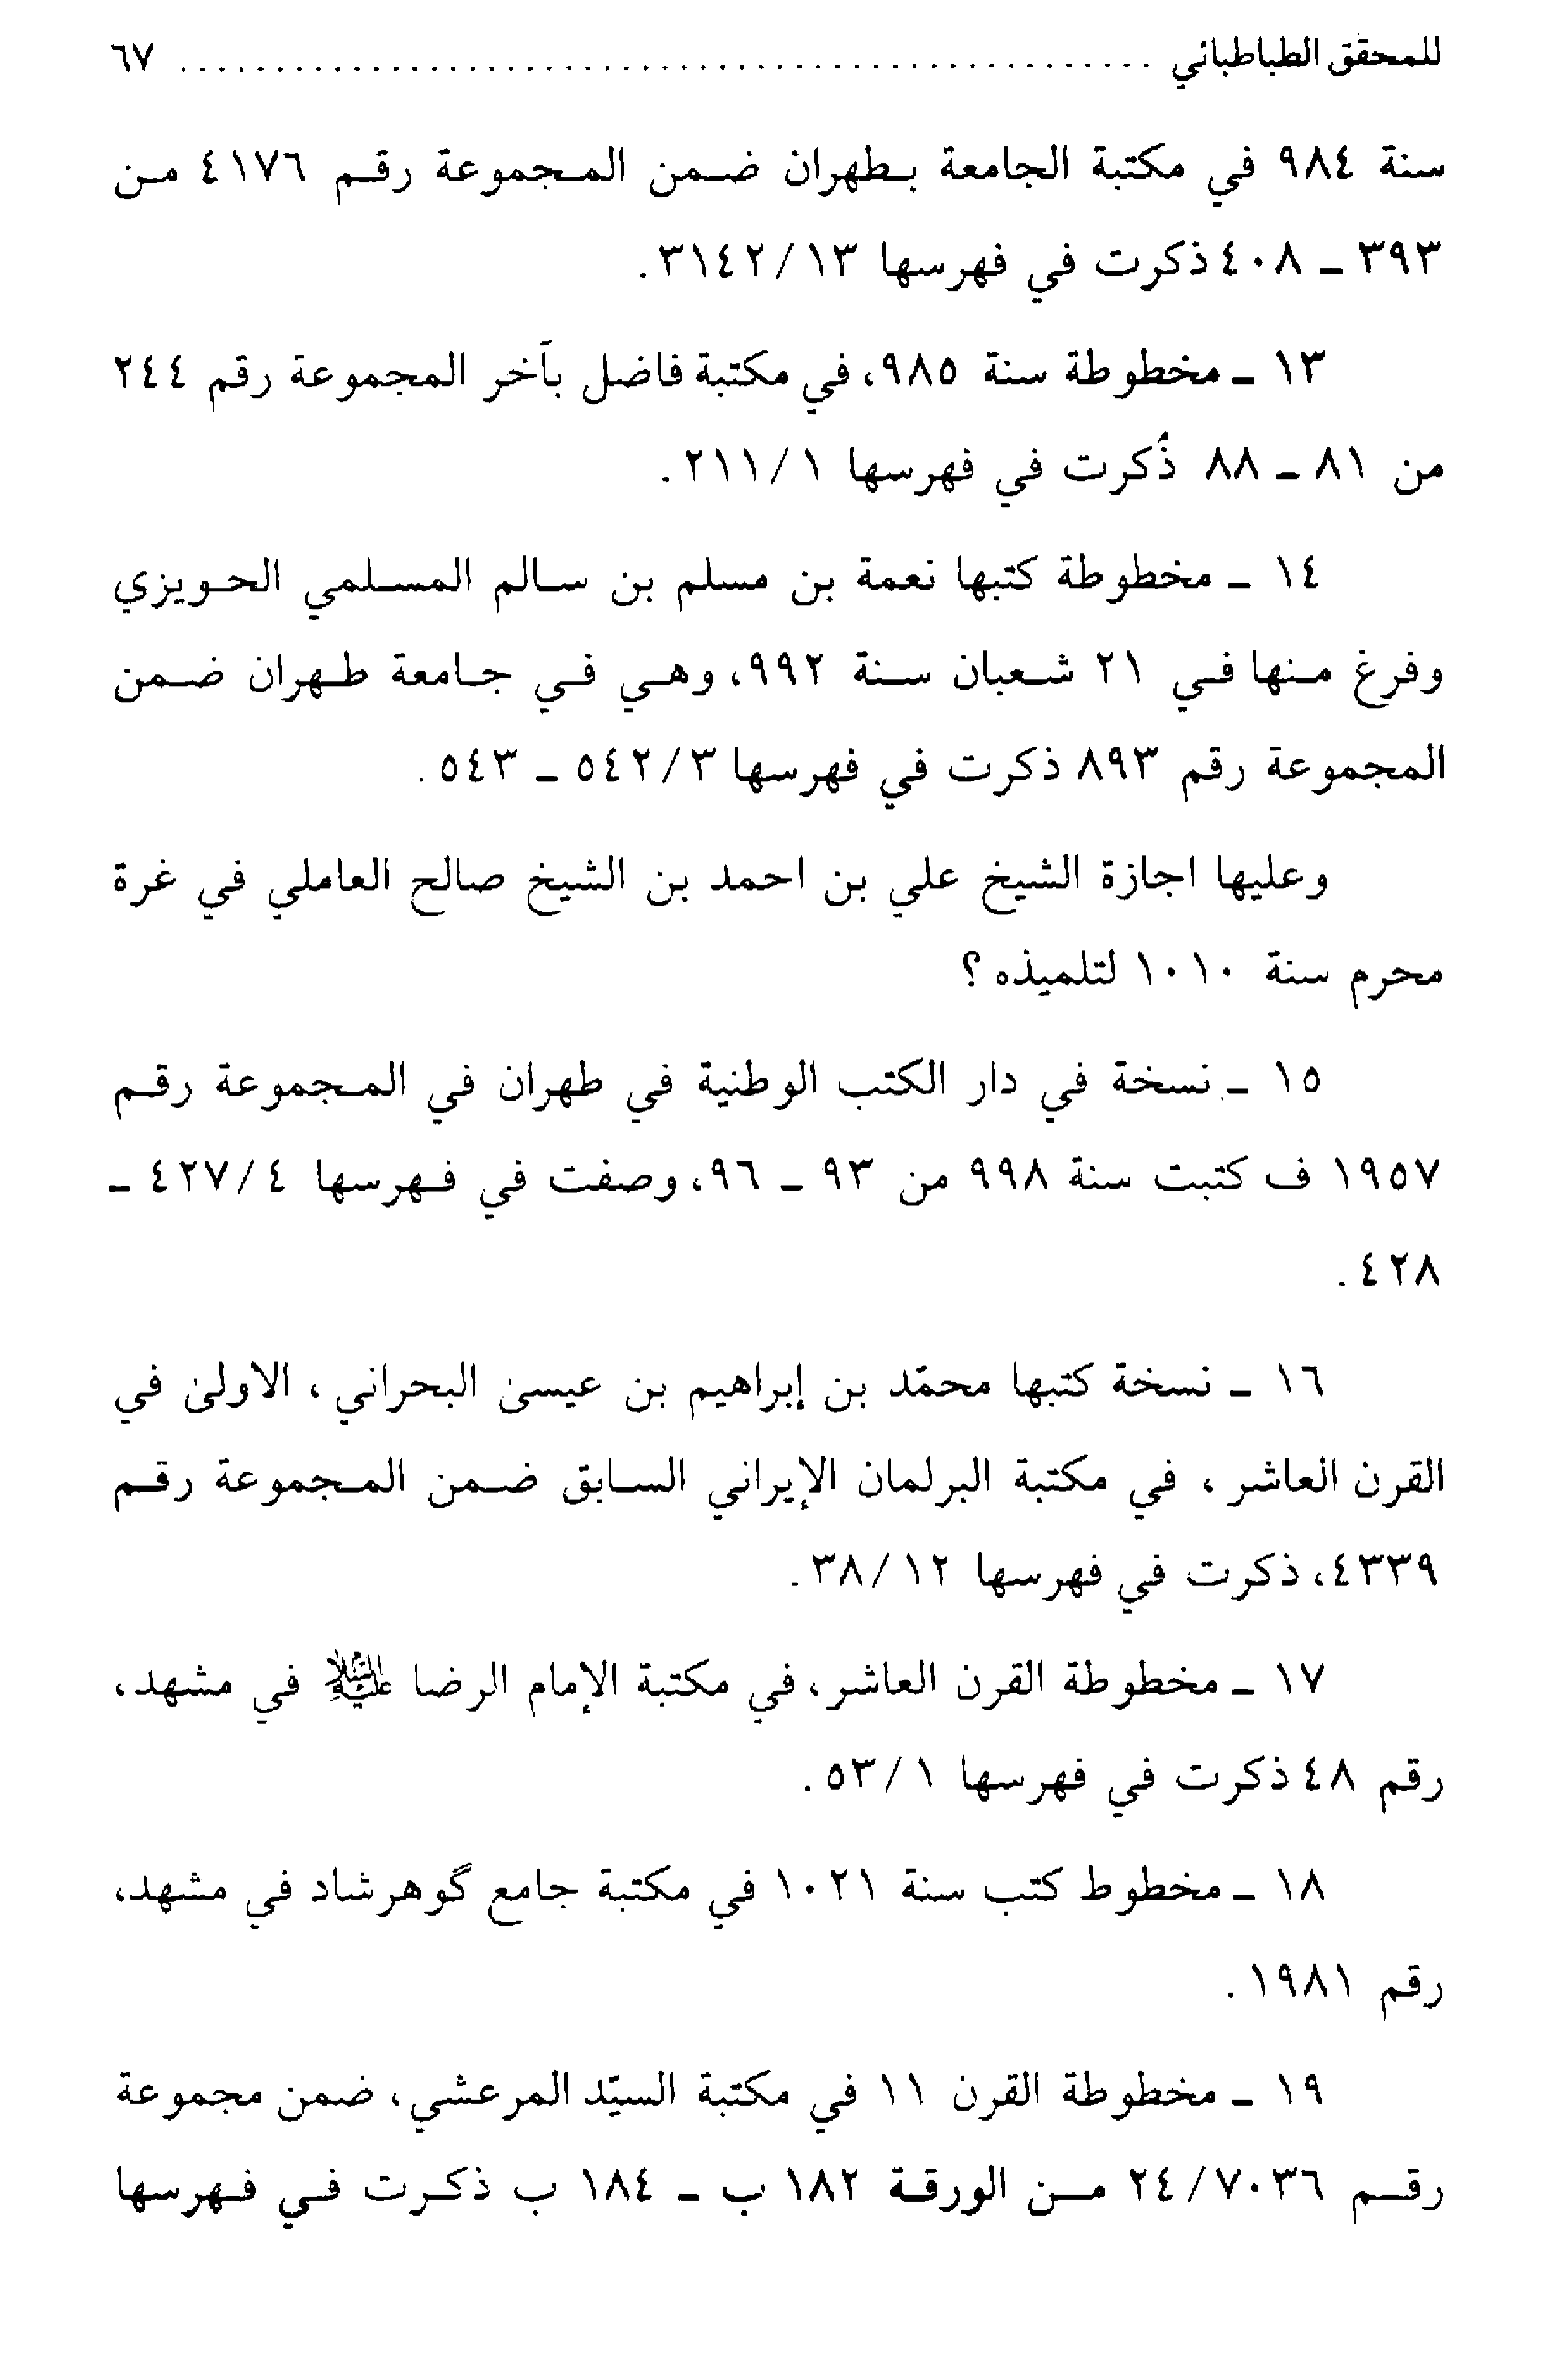 للمحقق الطباطبائي ................................................... ٦٧
سنة ٩٨٤ في مكتبة الجامعة بطهران ضمن المجموعة رقم ٤١٧٦ من
٣٩٣ ـ ٤٠٨ ذكرت في فهرسها ٣١٤٢/١٣.
١٣ ـ مخطوطة سنة ٩٨٥، في مكتبة فاضل بآخر المجموعة رقم ٢٤٤
من ٨١ ـ ٨٨ ذُكرت في فهرسها ٢١١/١.
١٤ ـ مخطوطة كتبها نعمة بن مسلم بن سالم المسلمي الحويزي
وفرغ منها في ٢١ شعبان سنة ٩٩٢، وهي في جامعة طهران ضمن
المجموعة رقم ٨٩٣ ذكرت في فهرسها ٥٤٢/٣ ـ ٥٤٣.
وعليها اجازة الشيخ علي بن احمد بن الشيخ صالح العاملي في غرة
محرم سنة ١٠١٠ لتلميذه ؟
١٥ ـ نسخة في دار الكتب الوطنية في طهران في المجموعة رقم
١٩٥٧ ف كتبت سنة ٩٩٨ من ٩٣ ـ ٩٦، وصفت في فهرسها ٤٢٧/٤ ـ
٤٢٨.
١٦ ـ نسخة كتبها محمّد بن إبراهيم بن عيسىٰ البحراني، الاولىٰ في
القرن العاشر، في مكتبة البرلمان الإيراني السابق ضمن المجموعة رقم
٤٣٣٩، ذكرت في فهرسها ٣٨/١٢.
١٧ ـ مخطوطة القرن العاشر، في مكتبة الإمام الرضا عليه السلام في مشهد،
رقم ٤٨ ذكرت في فهرسها ٥٣/١.
١٨ ـ مخطوط كتب سنة ١٠٢١ في مكتبة جامع گوهرشاد في مشهد،
رقم ١٩٨١.
١٩ ـ مخطوطة القرن ١١ في مكتبة السيّد المرعشي، ضمن مجموعة
رقم ٢٤/٧٠٣٦ من الورقة ١٨٢ ب ـ ١٨٤ ب ذكرت في فهرسها